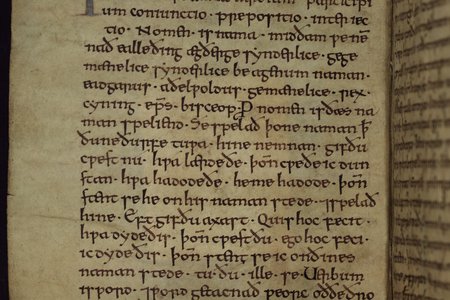 um coniunctio · prepositio · interiec
tio · Nomen · is nama · mid dam þe nē
nad ealle ding ægdær ge synderlice · gege
mænelice synderlice be agenum naman ·
eadgarus · adelpoldus · gemænelice · rex ·
cyning · ep̄s · bisceop · P nomen is dæs na
man speliend · Se spelad þone naman · ꝥ
dunedurfe tupa · hine nemnan · gif du
cpest nu · hpa lærdede · þoñ cpede ic dun
stan · hpa hadode de · heme hadode · þoñ
stent se he on his naman stede · ⁊ spelad
hine · Eft gif du axast · Quis hoc fecit ·
hpa dyde dis · þoñ cpest du · ego hoc feci ·
ic dyde dis · þoñ stent se ic on dines
naman stede · tu · du · ille · se · Uerbum
is pord · pord getacnad peorc odde dro